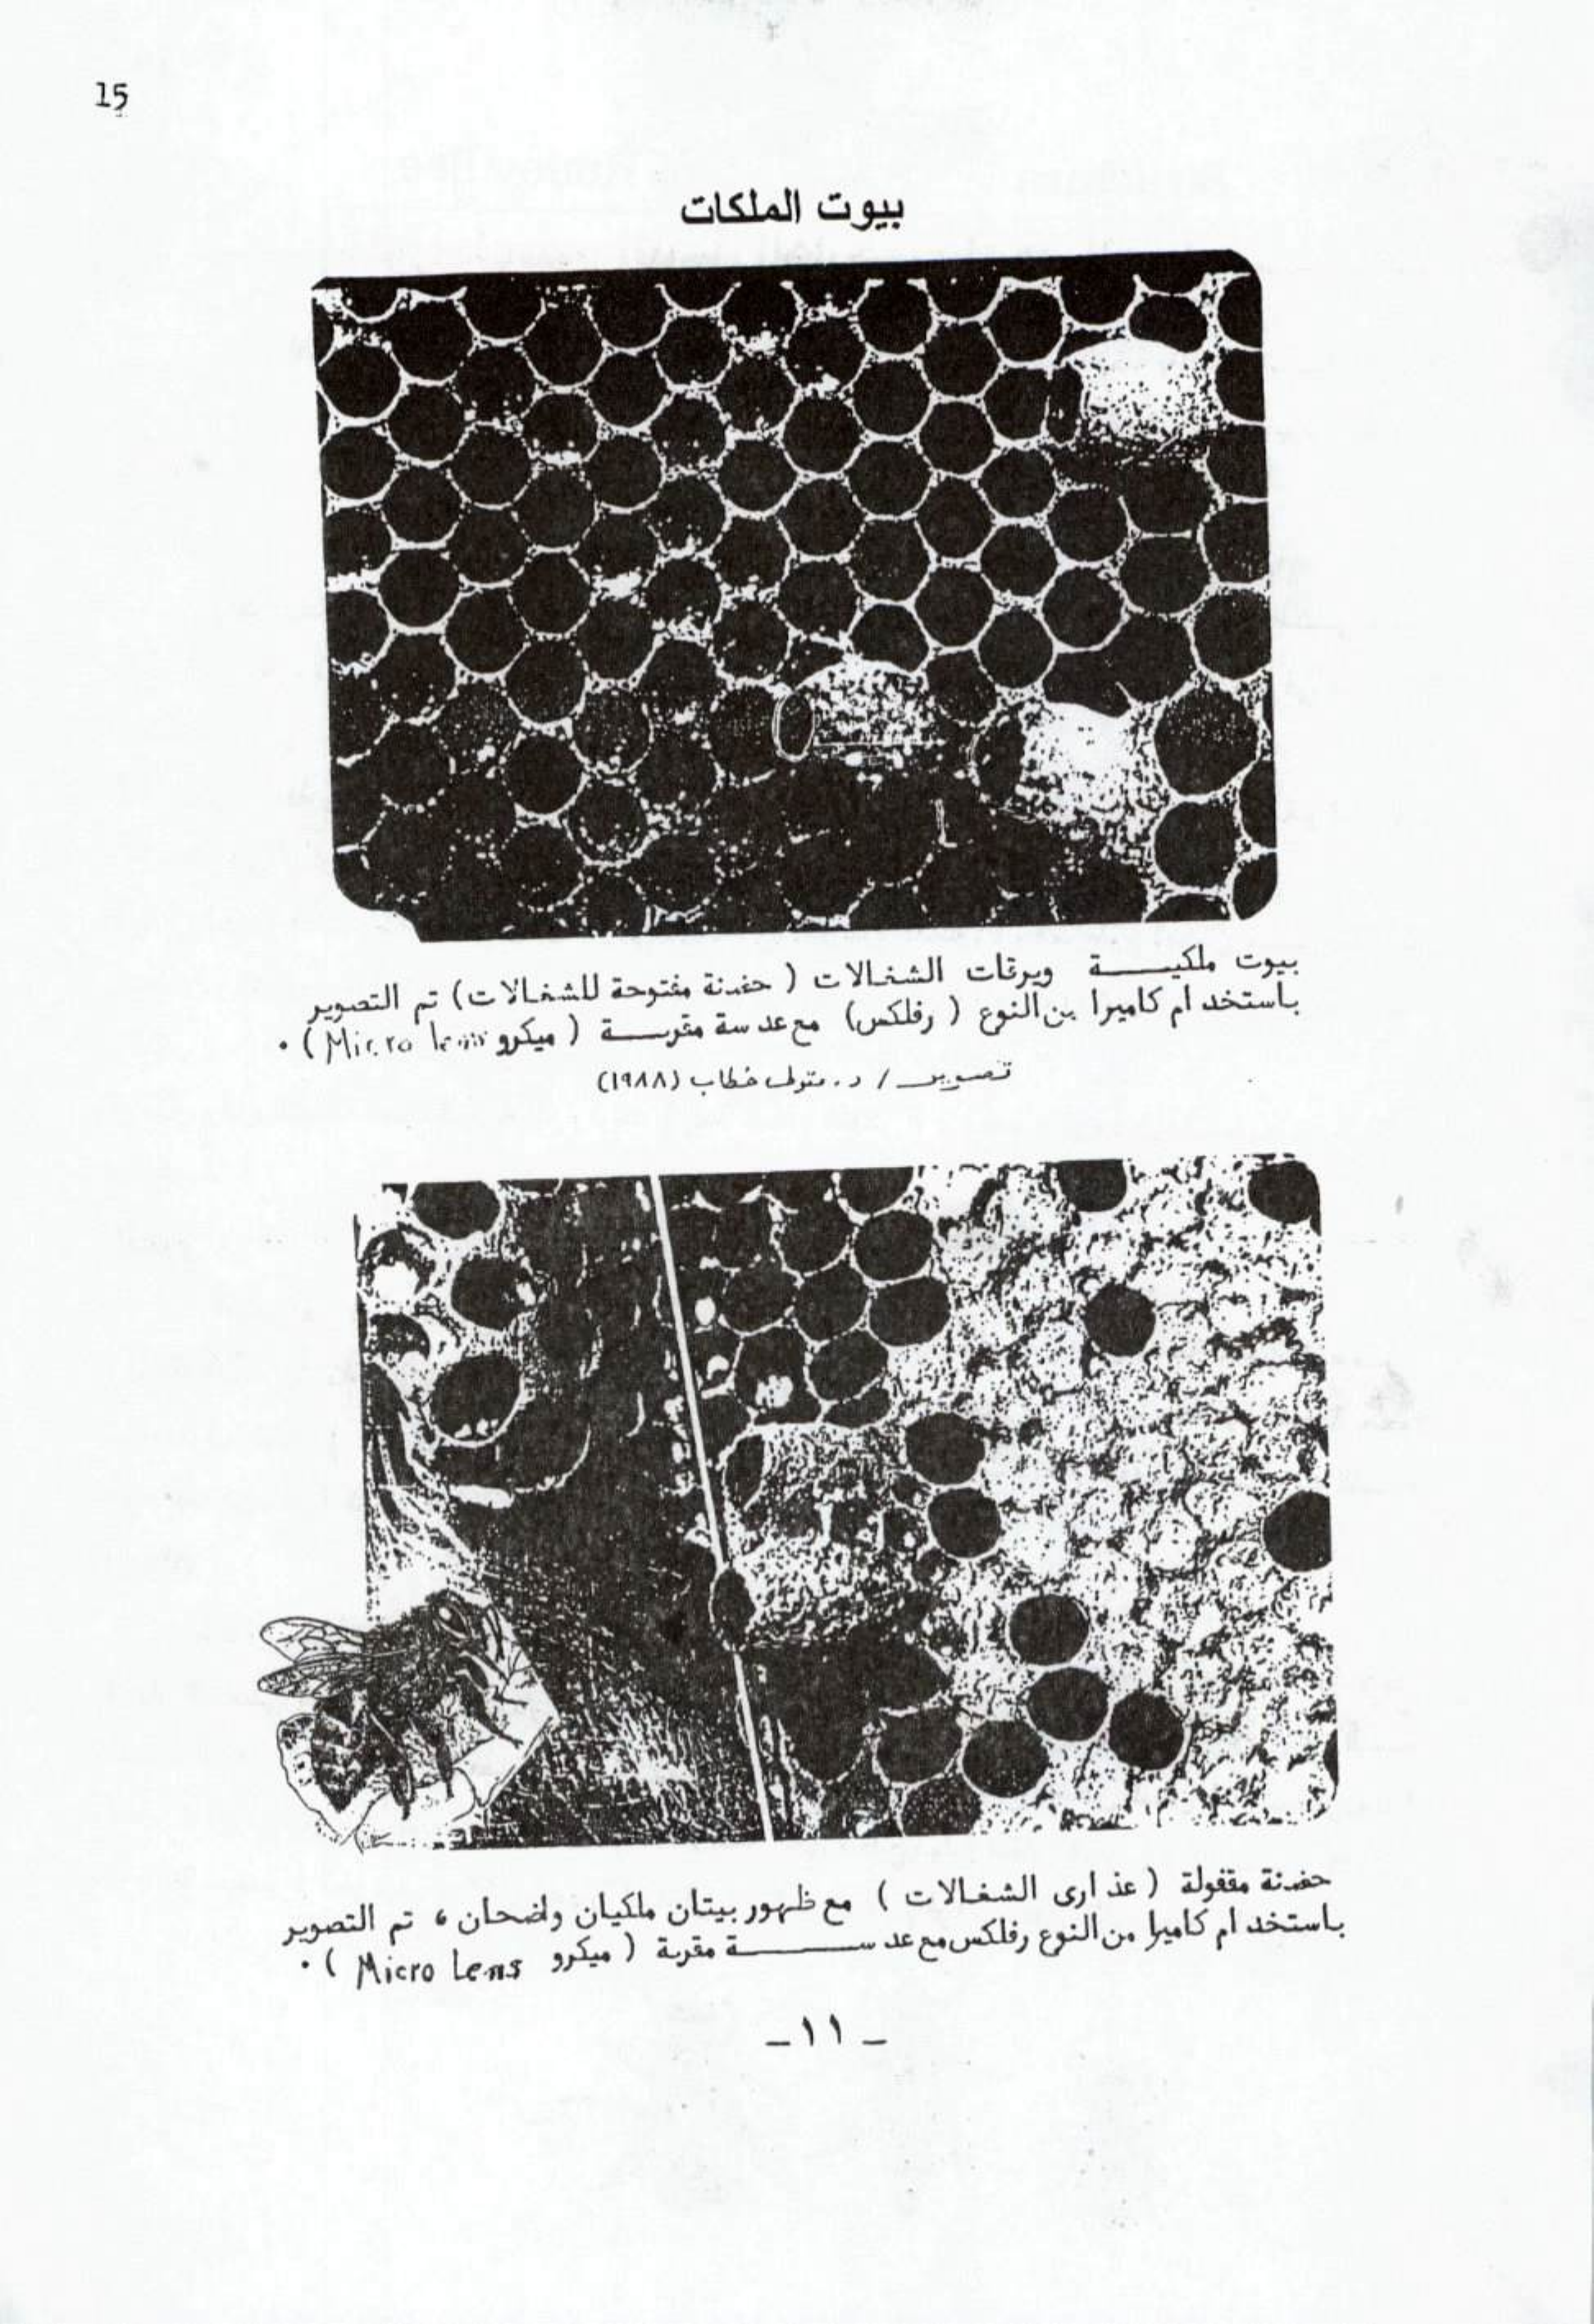 15
بيوت الملكات
بيوت ملكيـــــة ويرقات الشغالات ( حضنة مفتوحة للشغالات) تم التصوير
باستخدام كاميرا من النوع ( رفلكس) مع عدسة مقربـــة ( ميكرو Micro lens) .
تصويـر / د. متولى خطاب (١٩٨٨)
حضنة مقفولة ( عذارى الشغالات ) مع ظهور بيتان ملكيان واضحان ، تم التصوير
باستخدام كاميرا من النوع رفلكس مع عدســـــــة مقربة ( ميكرو Micro Lens ) .
- ١١ -